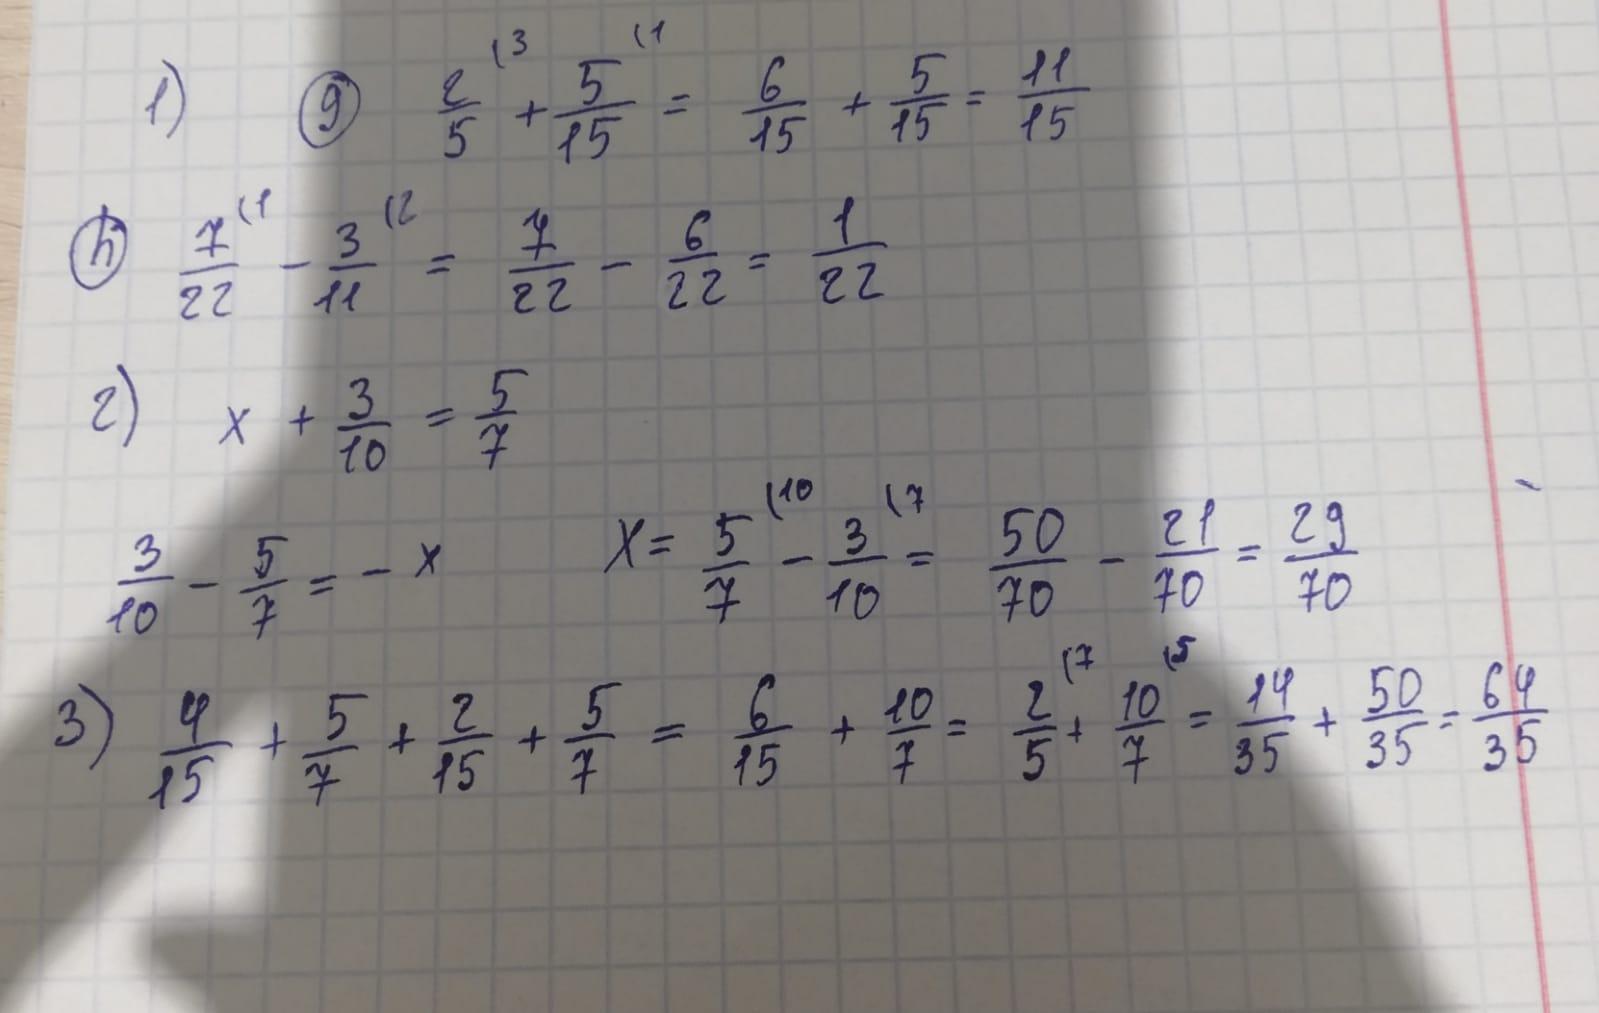 1) g 2/5 (3 + 5/15 (1 = 6/15 + 5/15 = 11/15
h 7/22 (1 - 3/11 (2 = 7/22 - 6/22 = 1/22
2) x + 3/10 = 5/7
3/10 - 5/7 = - x X = 5/7 (10 - 3/10 (7 = 50/70 - 21/70 = 29/70
3) 4/15 + 5/7 + 2/15 + 5/7 = 6/15 + 10/7 = 2/5 (7 + 10/7 (5 = 14/35 + 50/35 = 64/35